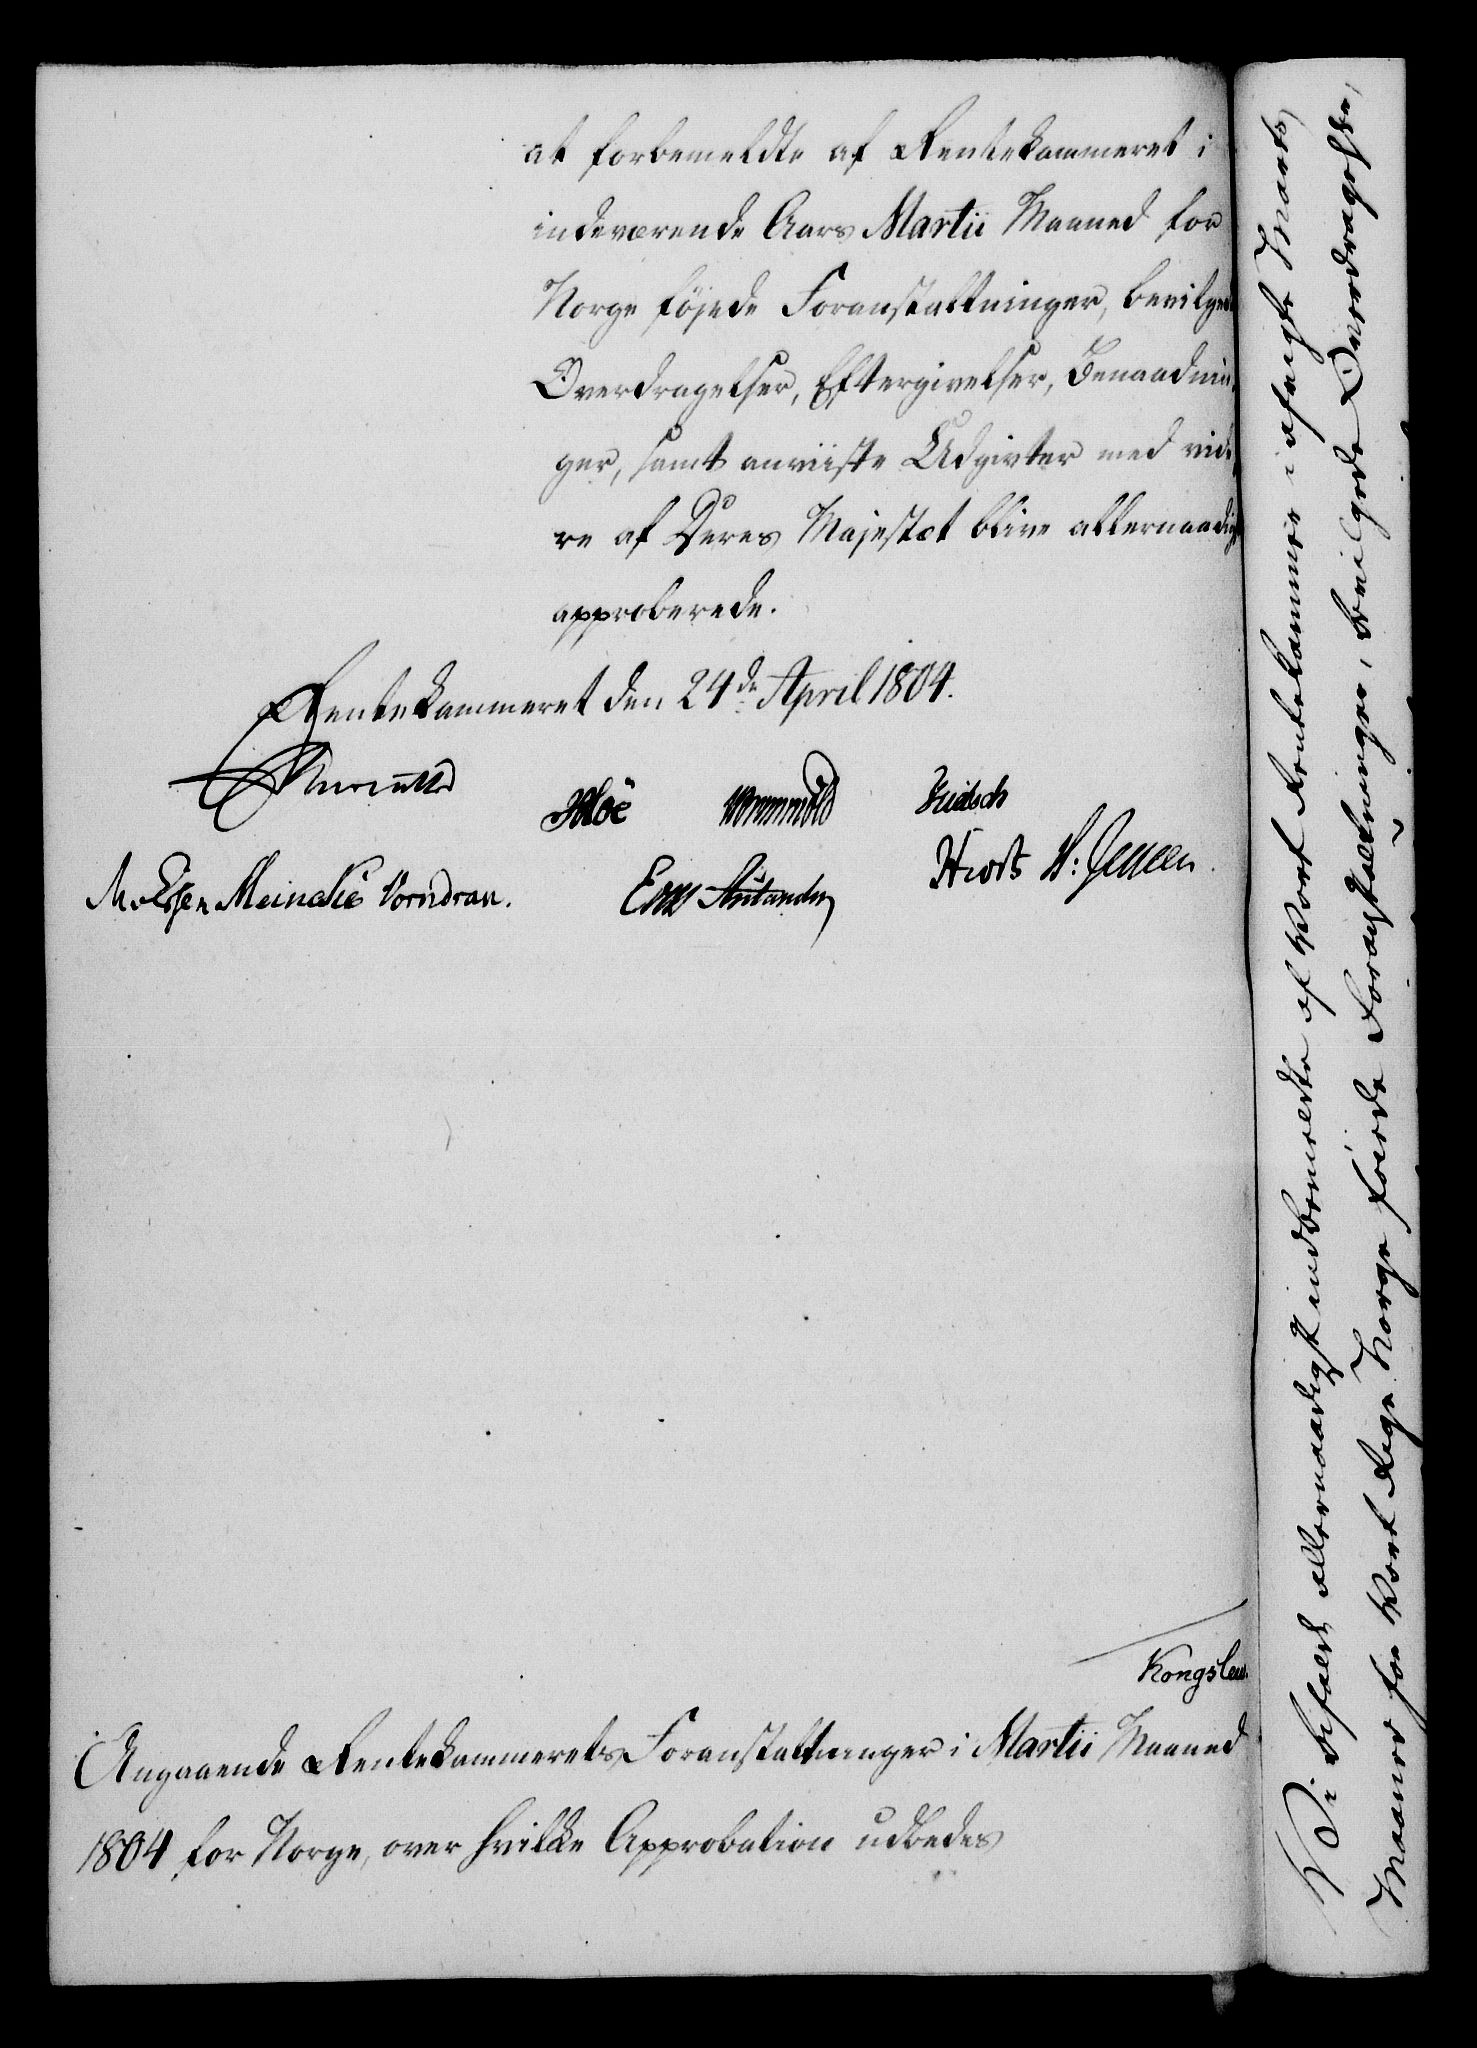 at forbemeldte af Rentekammeret i
indeværende Aars Martii Maaned for
Norge föjede Foranstaltninger, bevilgede
Overdragelser, Eftergivelser, Benaadnin-
ger, samt anviiste Udgivter med vide-
re af Deres Majestæt blive allernaadigst
approberede.
Rentekammeret den 24de April 1804.
Wormskiold
Meincke Vorndran.
Hiort H: Jensen.
Kongsleu
Angaaende Rentekammerets Foranstaltninger i Martii Maaned
1804 for Norge, over hvilke Approbation udbedes
Vi bifalde allernaadigst indbemeldte af Vort Rentekammer i afvigte Marts
Maaned for Vort Rige Norge föiede Foranstaltninger, bevilgede Overdragelser,